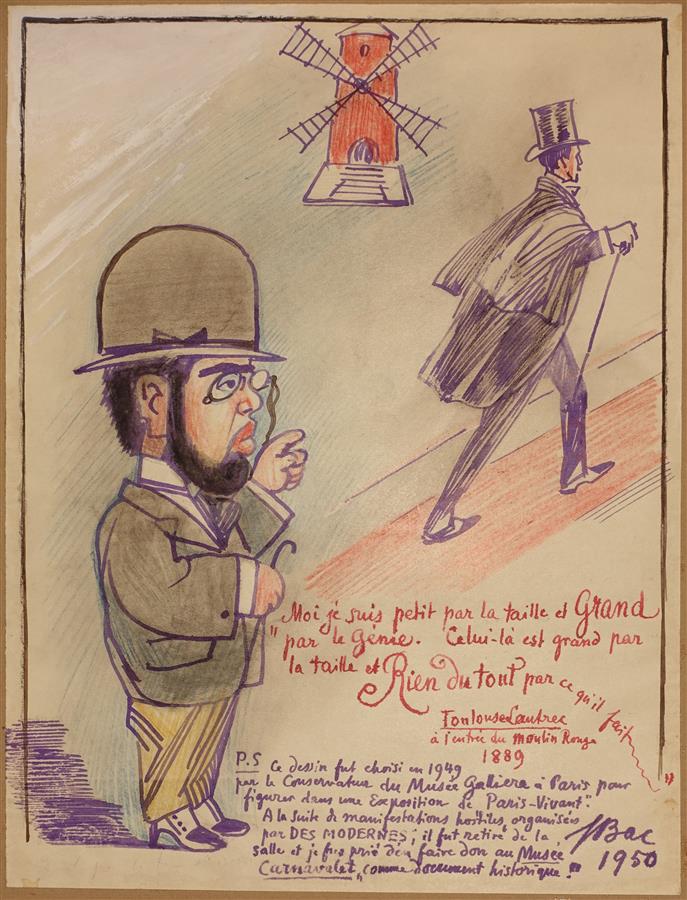 Moi je suis petit par la taille et Grand
" par le Génie. Celui-là est grand par
la taille et Rien du tout par ce qu'il fait "
Toulouse Lautrec
à l'entrée du Moulin Rouge
1889
P.S Ce dessin fut choisi en 1949
par le Conservateur du Musée Galliera à Paris pour
figurer dans une Exposition de Paris-Vivant.
A la suite de manifestations hostiles organisées
par DES MODERNES; il fut retiré de la
salle et je fus prié d'en faire don au Musée
Carnavalet "comme document historique."
Bac
1950